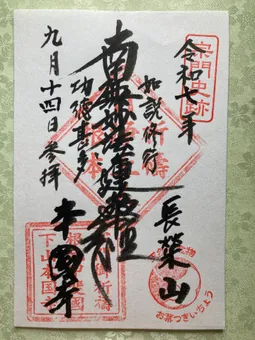 宗門史跡
令和七年
如説修行
長榮山
南無妙法蓮華經
功徳甚多
本國寺
九月十四日参拝
お葉つきいちょう